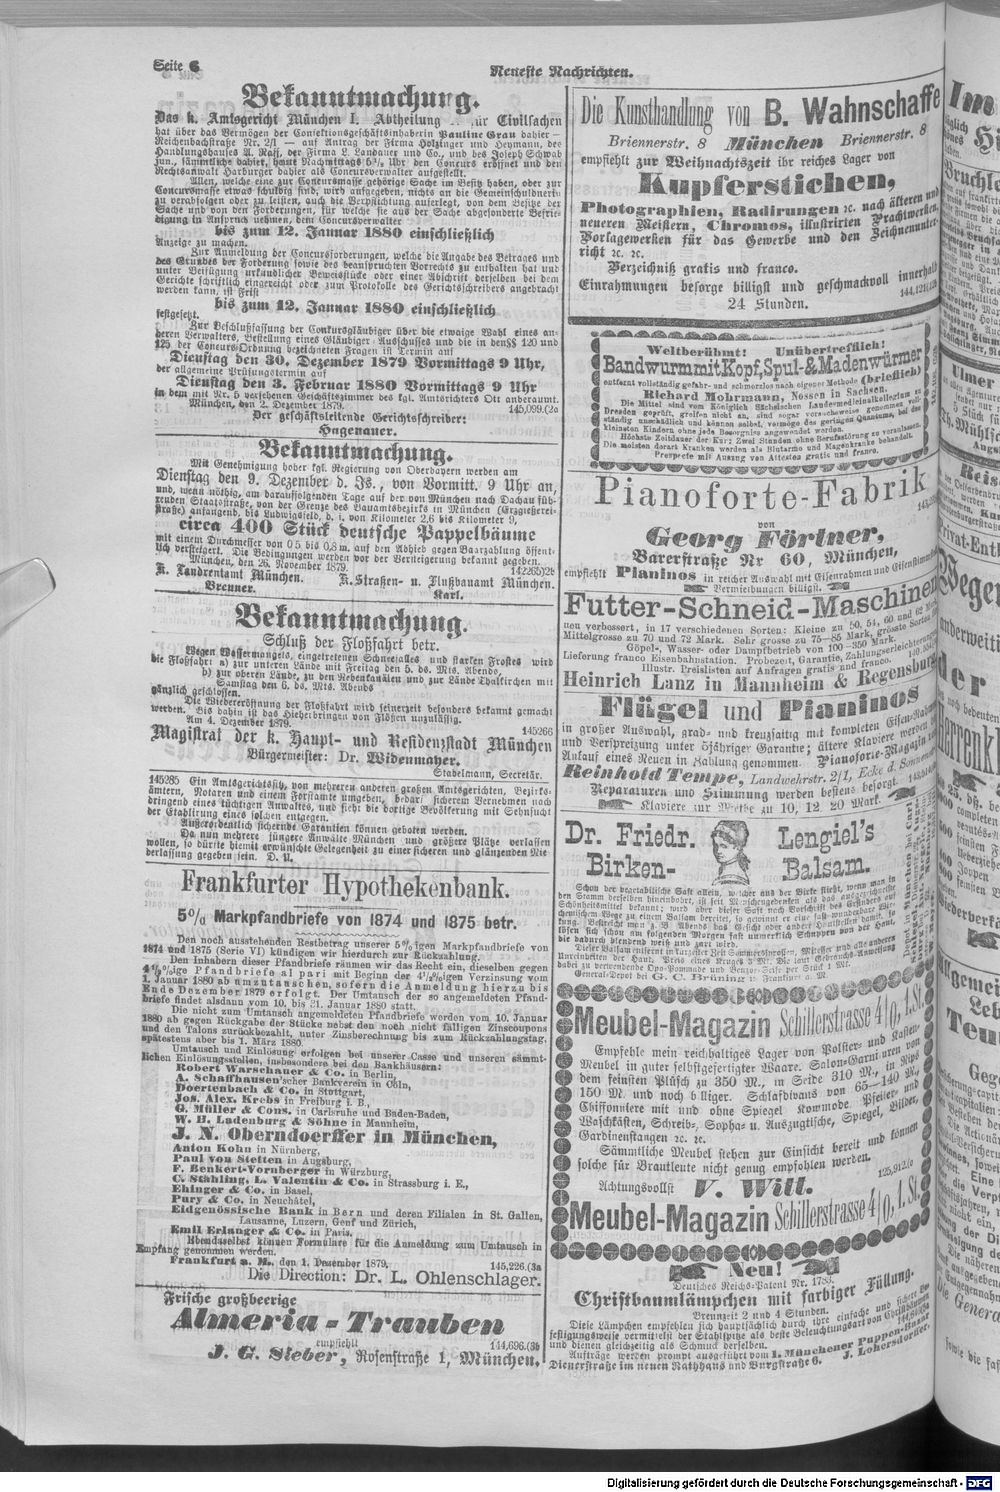 Seite 6
Neueste Nachrichten.
Bekanntmachung.
Das k. Amtsgericht München I. Abtheilung für Civilsachen
hat über das Vermögen der Confektionsgeschäftsinhaberin Pauline Grau dahier —
Reichenbachstraße Nr. 2/I — auf Antrag der Firma Holzinger und Heymann, des
Handlungshauses A. Naff, der Firma L. Landauer und Co., und des Joseph Schwab
jun., sämmtliche dahier, heute Nachmittags 5½ Uhr den Concurs eröffnet und den
Rechtsanwalt Harburger dahier als Concursverwalter aufgestellt.
Allen, welche eine zur Concursmasse gehörige Sache im Besitz haben, oder zur
Concursmasse etwas schuldig sind, wird aufgegeben, nichts an die Gemeinschuldnerin
zu verabfolgen oder zu leisten, auch die Verpflichtung auferlegt, von dem Besitze der
Sache und von den Forderungen, für welche sie aus der Sache abgesonderte Befrie-
digung in Anspruch nehmen, dem Concursverwalter
bis zum 12. Januar 1880 einschließlich
Anzeige zu machen.
Zur Anmeldung der Concursforderungen, welche die Angabe des Betrages und
des Grundes der Forderung sowie des beanspruchten Vorrechts zu enthalten hat und
unter Beifügung urkundlicher Beweisstücke oder einer Abschrift derselben bei dem
Gerichte schriftlich eingereicht oder zum Protokolle des Gerichtschreibers angebracht
werden kann, ist Frist
bis zum 12. Januar 1880 einschließlich
festgesetzt.
Zur Beschlußfassung der Conkursgläubiger über die etwaige Wahl eines an-
deren Verwalters, Bestellung eines Gläubiger-Ausschusses und die in den §§ 120 und
125 der Concurs-Ordnung bezeichneten Fragen ist Termin auf
Dienstag den 30. Dezember 1879 Vormittags 9 Uhr,
der allgemeine Prüfungstermin auf
Dienstag den 3. Februar 1880 Vormittags 9 Uhr
in dem mit Nr. 5 versehenen Geschäftszimmer des kgl. Amtsrichters Ott anberaumt.
München, den 2. Dezember 1879. 145,099.(2a
Der geschäftsleitende Gerichtschreiber:
Hagenauer.
Bekanntmachung.
Mit Genehmigung hoher kgl. Regierung von Oberbayern werden am
Dienstag den 9. Dezember d. Js., von Vormitt. 9 Uhr an,
und, wenn nöthig, am darauffolgenden Tage auf der von München nach Dachau füh-
renden Staatsstraße, von der Grenze des Bauamtsbezirks in München (Erzgießerei-
straße) anfangend, bis Ludwigsfeld, d. i. von Kilometer 2,6 bis Kilometer 9,
circa 400 Stück deutsche Pappelbäume
mit einem Durchmesser von 0,5 bis 0,8 m. auf den Abhieb gegen Baarzahlung öffent-
lich versteigert. Die Bedingungen werden vor der Versteigerung bekannt gegeben.
München, den 26. November 1879. 142265)2b
K. Landrentamt München. K. Straßen- u. Flußbauamt München.
Brenner. Karl.
Bekanntmachung.
Schluß der Floßfahrt betr.
Wegen Wassermangels, eingetretenen Schneefalles und starken Frostes wird
die Floßfahrt a) zur unteren Lände mit Freitag den 5. ds. Mts. Abends,
b) zur oberen Lände, zu den Nebenkanälen und zur Lände Thalkirchen mit
Samstag den 6. ds. Mts. Abends
gänzlich geschlossen.
Die Wiedereröffnung der Floßfahrt wird seinerzeit besonders bekannt gemacht
werden. Bis dahin ist das Hieherbringen von Flößen unzulässig.
Am 4. Dezember 1879. 145266
Magistrat der k. Haupt- und Residenzstadt München
Bürgermeister: Dr. Widenmayer.
Stadelmann, Secretär.
145285 Ein Amtsgerichtssitz, von mehreren anderen großen Amtsgerichten, Bezirks-
ämtern, Notaren und einem Forstamte umgeben, bedarf sicherem Vernehmen nach
dringend eines tüchtigen Anwaltes, und sieht die dortige Bevölkerung mit Sehnsucht
der Etablirung eines solchen entgegen.
Außerordentlich sichernde Garantien können geboten werden.
Da nun mehrere jüngere Anwälte München und größere Plätze verlassen
wollen, so dürfte hiemit erwünschte Gelegenheit zu einer sicheren und glänzenden Nie-
derlassung gegeben sein. D. U.
Frankfurter Hypothekenbank.
5% Markpfandbriefe von 1874 und 1875 betr.
Den noch ausstehenden Restbetrag unserer 5%igen Markpfandbriefe von
1874 und 1875 (Serie VI) kündigen wir hierdurch zur Rückzahlung.
Den Inhabern dieser Pfandbriefe räumen wir das Recht ein, dieselben gegen
4½%ige Pfandbriefe al pari mit Beginn der 4½%igen Verzinsung vom
1. Januar 1880 ab umzutauschen, sofern die Anmeldung hierzu bis
Ende Dezember 1879 erfolgt. Der Umtausch der so angemeldeten Pfand-
briefe findet alsdann vom 10. bis 31. Januar 1880 statt.
Die nicht zum Umtausch angemeldeten Pfandbriefe werden vom 10. Januar
1880 ab gegen Rückgabe der Stücke nebst den noch nicht fälligen Zinscoupons
und den Talons zurückbezahlt, unter Zinsberechnung bis zum Rückzahlungstag,
spätestens aber bis 1. März 1880.
Umtausch und Einlösung erfolgen bei unserer Casse und unseren sämmt-
lichen Einlösungsstellen, insbesondere bei den Bankhäusern:
Robert Warschauer & Co. in Berlin,
A. Schaffhausen'scher Bankverein in Cöln,
Doertenbach & Co. in Stuttgart,
Jos. Alex. Krebs in Freiburg i. B.,
G. Müller & Cons. in Carlsruhe und Baden-Baden,
W. H. Ladenburg & Söhne in Mannheim,
J. N. Oberndoerffer in München,
Anton Kohn in Nürnberg,
Paul von Stetten in Augsburg,
F. Benkert-Vornberger in Würzburg,
C. Stähling, L. Valentin & Co. in Strassburg i. E.,
Ehinger & Co. in Basel,
Pury & Co. in Neuchâtel,
Eidgenössische Bank in Bern und deren Filialen in St. Gallen,
Lausanne, Luzern, Genf und Zürich,
Emil Erlanger & Co. in Paris.
Ebendaselbst können Formulare für die Anmeldung zum Umtausch in
Empfang genommen werden.
Frankfurt a. M., den 1. Dezember 1879. 145,226.(3a
Die Direction: Dr. L. Ohlenschlager.
Frische großbeerige
Almeria-Trauben
empfiehlt 144,696.(3b
J. G. Sieber, Rosenstraße 1, München.
Die Kunsthandlung von B. Wahnschaffe
Briennerstr. 8 München Briennerstr. 8
empfiehlt zur Weihnachtszeit ihr reiches Lager von
Kupferstichen,
Photographien, Radirungen ꝛc. nach älteren und
neueren Meistern, Chromos, illustrirten Prachtwerken,
Vorlagewerken für das Gewerbe und den Zeichnenunter-
richt ꝛc. ꝛc.
Verzeichniß gratis und franco.
Einrahmungen besorge billigst und geschmackvoll innerhalb
24 Stunden.
Weltberühmt! Unübertrefflich!
Bandwurm mit Kopf, Spul- & Madenwürmer
entfernt vollständig gefahr- und schmerzlos nach eigener Methode (brieflich)
Richard Mohrmann, Nossen in Sachsen.
Die Mittel sind vom Königlich Sächsischen Landesmedizinalkollegium zu
Dresden geprüft, greifen nicht an, sind sogar vorsuchsweise genommen, voll-
ständig unschädlich und können selbst, vermöge des geringen Quantums, bei den
kleinsten Kindern ohne jede Besorgniss angewendet werden.
Höchste Zeitdauer der Kur: Zwei Stunden ohne Berufsstörung zu veranlassen.
Die meisten derart Kranken werden als Blutarme und Magenkranke behandelt.
Prospecte mit Auszug von Attesten gratis und franco.
Pianoforte-Fabrik
von
Georg Förtner,
Barerstraße Nr 60, München,
empfiehlt Pianinos in reicher Auswahl mit Eisenrahmen und Eisenstimmstock
Vermiethungen billigst.
Futter-Schneid-Maschinen
neu verbessert, in 17 verschiedenen Sorten: Kleine zu 50, 54, 60 und 62 Mark,
Mittelgrosse zu 70 und 72 Mark. Sehr grosse zu 75—85 Mark, grösste Sorten
Göpel-, Wasser- oder Dampfbetrieb von 100—350 Mark.
Lieferung franco Eisenbahnstation. Probezeit, Garantie, Zahlungserleichterung
Illustr. Preislisten auf Anfragen gratis und franco.
Heinrich Lanz in Mannheim & Regensburg
Flügel und Pianinos
in großer Auswahl, grad- und kreuzsaitig mit kompleten Eisen-Rahmen
und Verspreizung unter 5jähriger Garantie; ältere Klaviere werden
Ankauf eines Neuen in Zahlung genommen. Pianoforte-Magazin von
Reinhold Tempe, Landwehrstr. 2/I, Ecke d. Sonnenstr.
Reparaturen und Stimmung werden bestens besorgt.
Klaviere zur Miethe zu 10, 12, 20 Mark.
Dr. Friedr. Lengiel's
Birken- Balsam.
Schon der vegetabilische Saft allein, welcher aus der Birke fließt, wenn man in
den Stamm derselben hineinbohrt, ist seit Menschengedenken als das ausgezeichnetste
Schönheitsmittel bekannt; wird aber dieser Saft nach Vorschrift des Erfinders auf
chemischem Wege zu einem Balsam bereitet, so gewinnt er eine fast wunderbare Wir-
kung. Bestreicht man z. B. Abends das Gesicht oder andere Hautstellen damit, so
lösen sich schon am folgenden Morgen fast unmerklich Schuppen von der Haut,
die dadurch blendend weiß und zart wird.
Dieser Balsam entfernt in kürzester Zeit Sommersprossen, Mitesser und alle anderen
Unreinheiten der Haut. Preis eines Kruges 3 Mr. Die laut Gebrauchs-Anweisung
dabei zu verwendende Opo-Pommade und Benzoe-Seife per Stück 1 Mk.
General-Depot bei G. C. Brüning in Frankfurt a. M.
Meubel-Magazin Schillerstrasse 4/0, 1. St.
Empfehle mein reichhaltiges Lager von Polster- und Kasten-
Meubel in guter selbstgefertigter Waare. Salon-Garnituren von
dem feinsten Plüsch zu 350 M., in Seide 310 M., in Rips
150 M. und noch billiger. Schlafdivans von 65—140 M.,
Chiffonniere mit und ohne Spiegel Kommode, Pfeiler- und
Waschkästen, Schreib-, Sopha- u. Auszugtische, Spiegel, Bilder,
Gardinenstangen ꝛc. ꝛc.
Sämmtliche Meubel stehen zur Einsicht bereit und können
solche für Brautleute nicht genug empfohlen werden.
Achtungsvollst V. Will.
Meubel-Magazin Schillerstrasse 4/0, 1. St.
Neu!
Deutsches Reichs-Patent Nr. 1783.
Christbaumlämpchen mit farbiger Füllung.
Brennzeit 2 und 4 Stunden.
Diese Lämpchen empfehlen sich hauptsächlich durch ihre einfache und sichere Be-
festigungsweise vermittelst der Stahlspitze als beste Beleuchtungsart von Christbäumen
und dienen gleichzeitig als Schmuck derselben.
Aufträge werden prompt ausgeführt vom 1. Münchener Puppen-Bazar
Dienerstraße im neuen Rathhaus und Burgstraße 6. J. Lohersdorffer.
Digitalisierung gefördert durch die Deutsche Forschungsgemeinschaft - DFG